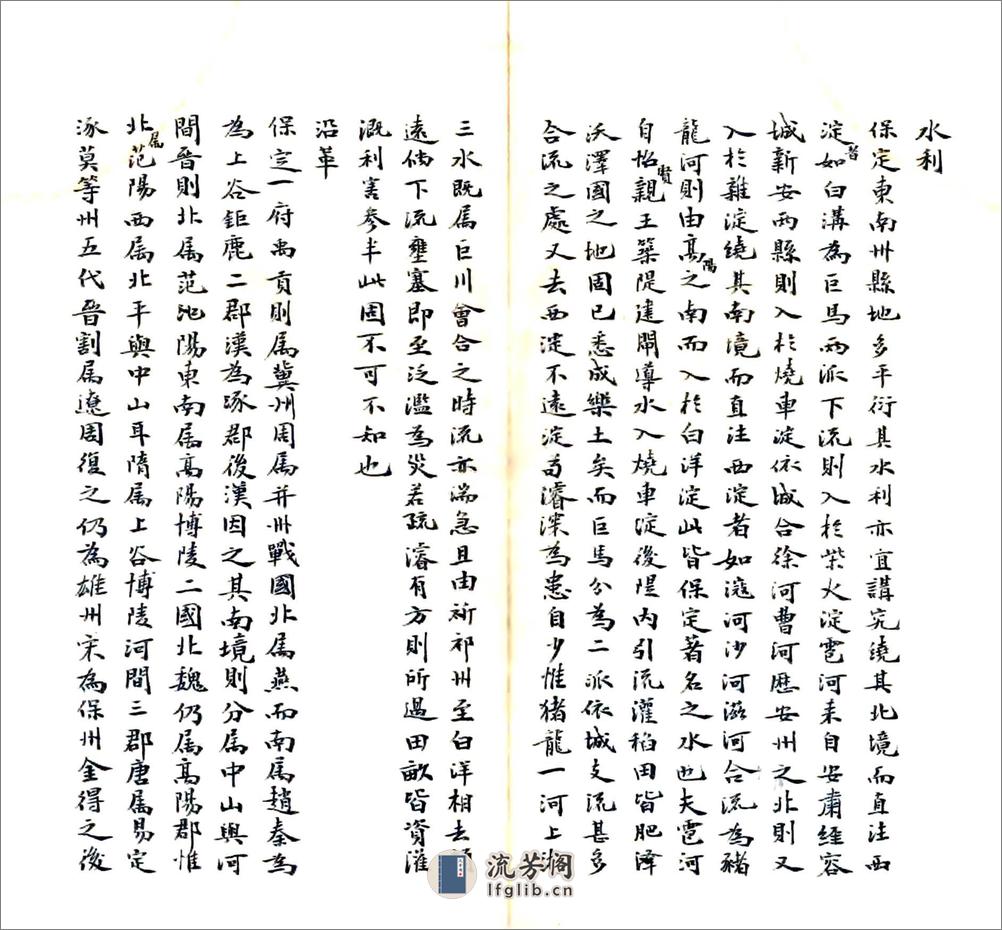 水利
保定東南州縣地多平衍其水利亦宜講究繞其北境而直注西
淀者如白溝為巨馬兩派下流則入於柴火淀雹河來自安肅經容
城新安兩縣則入於燒車淀依城合徐河曹河歷安州之北則又
入於雜淀繞其南境而直注西淀者如滱河沙河滋河合流為豬
龍河則由高陽之南而入於白洋淀此皆保定著名之水也夫雹河
自怡賢親王築隄建閘導水入燒車淀後隄內引流灌稻田皆肥澤
沃澤國之地固已悉成樂土矣而巨馬分為二派依城支流甚多
合流之處又去西淀不遠淀苟濬深為患自少惟豬龍一河上
三水既屬巨川會合之時流亦湍急且由祈祁州至白洋相去
遠倘下流壅塞即至泛濫為災若疏濬有方則所過田畝皆資灌
溉利害參半此固不可不知也
沿革
保定一府禹貢則屬冀州周屬并州戰國北屬燕而南屬趙秦為
為上谷鉅鹿二郡漢為涿郡後漢因之其南境則分屬中山與河
間晉則北屬范池陽東南屬高陽博陵二國北魏仍屬高陽郡惟
北屬范陽西屬北平與中山耳隋屬上谷博陵河間三郡唐屬易定
涿莫等州五代晉割屬遼周復之仍為雄州宋為保州金得之後
流芳阁
lfglib.cn